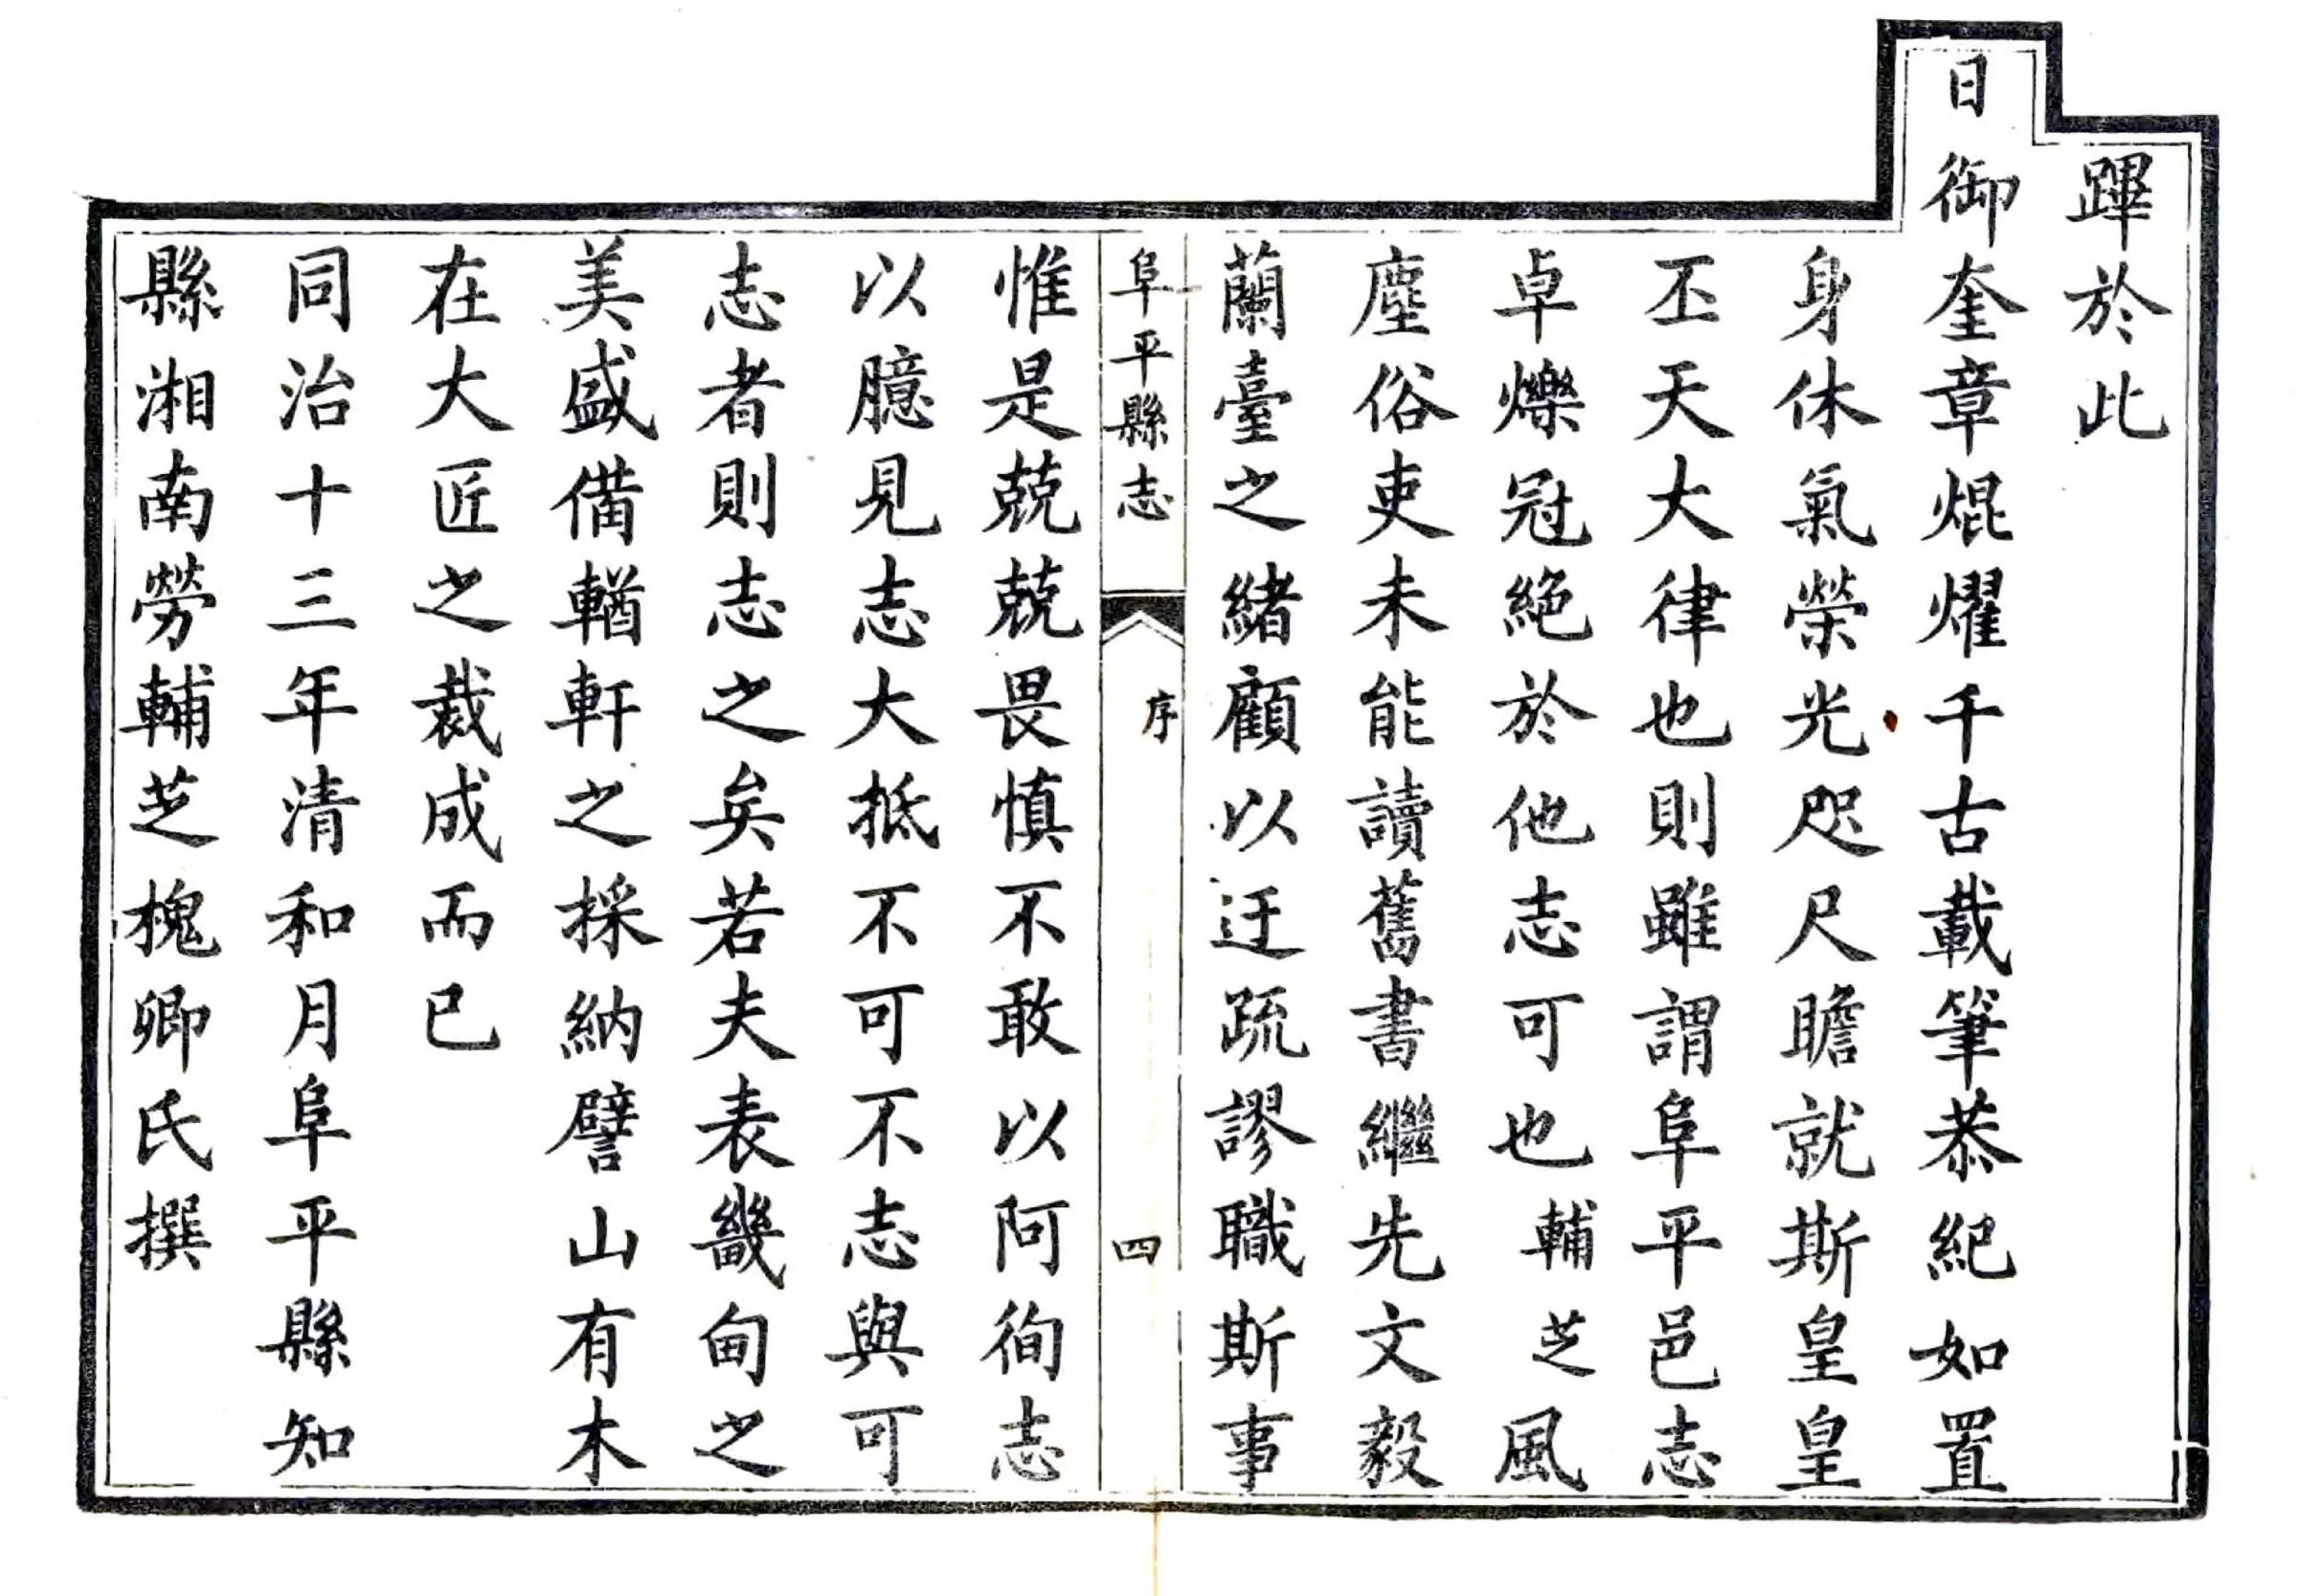 蹕於此
日御奎章焜燿千古載筆恭紀如置
身休氣榮光咫尺瞻就斯皇皇
丕天大律也則雖謂阜平邑志
卓爍冠絶於他志可也輔芝風
塵俗吏未能讀舊書繼先文毅
蘭臺之緒顧以迂疏謬職斯事
阜平縣志
序
四
惟是兢兢畏慎不敢以阿徇志
以臆見志大抵不可不志與可
志者則志之矣若夫表畿甸之
美盛備輶軒之採納譬山有木
在大匠之裁成而已
同治十三年清和月阜平縣知
縣湘南勞輔芝槐卿氏撰